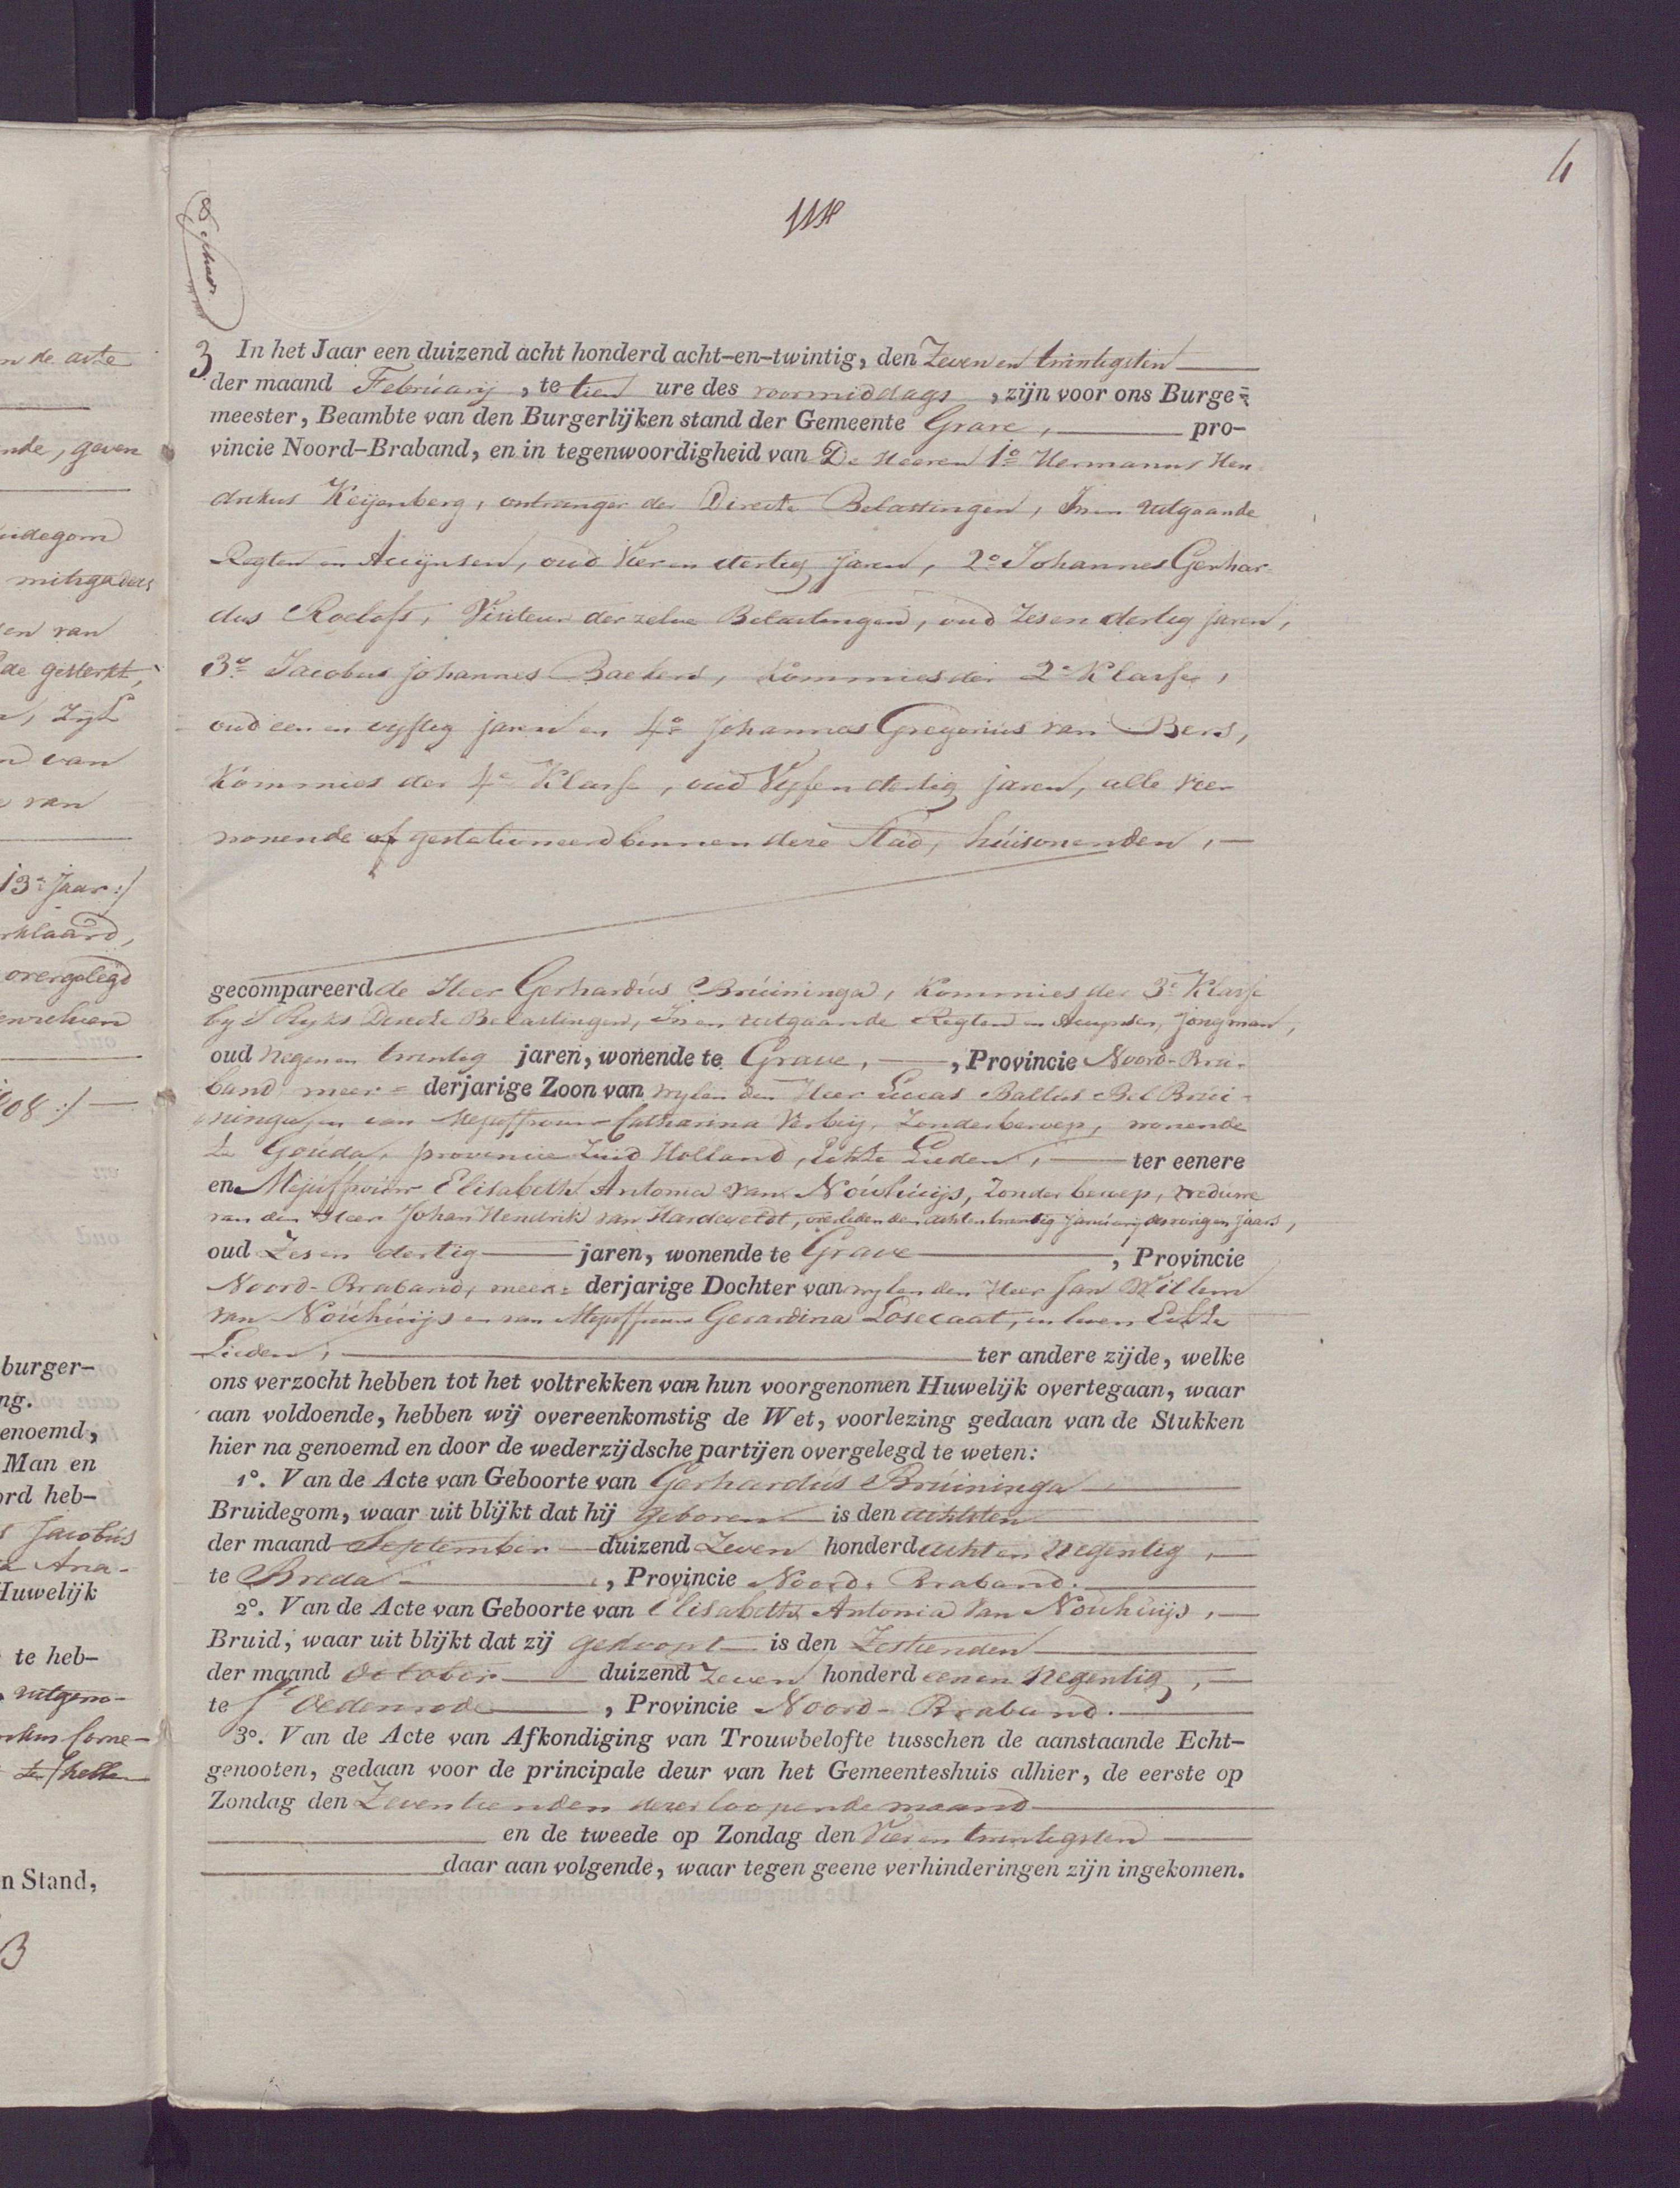 4
3 In het Jaar een duizend acht honderd acht-en-twintig, den Zeven en twintigsten
der maand February, te tien ure des voormiddags, zijn voor ons Burge=
meester, Beambte van den Burgerlijken stand der Gemeente Grave, pro-
vincie Noord-Braband, en in tegenwoordigheid van De Heeren 1o Hermanus Hen
drikus Keijenberg, ontvanger der Directe Belastingen, In en uitgaande
Regten en Accijnsen, oud Vier en dertig jaren, 2o Johannes Gerhar-
dus Roelofs, Visiteur derzelve Belastingen, oud Zes en dertig jaren,
3o Jacobus Johannes Baekers, Kommies der 2e Klasse,
oud een en vyftig jaren en 4o Johannes Gregorius van Bers,
Kommies der 4e Klasse, oud Vyf en dertig jaren, alle vier
wonende of gestationeerd binnen deze Stad,
gecompareerd de Heer Gerhardus Bruininga, Kommies der 3e Klasse
by S Ryks Directe Belastingen, In en uitgaande Regten en Accynsen, jongman,
oud Negen en twintig jaren, wonende te Grave, Provincie Noord-Bra-
band meer= derjarige Zoon van wylen den Heer Lucas Baltus Bruí-
ninga en van Mejuffrouw Catharina Verbeij, Zonder beroep, wonende
te Gouda, provincie Zuid Holland, Echte Lieden, ter eenere
en Mejuffrouw Elisabeth Antonia van Nouhuijs, Zonder beroep, weduwe
van den Heer Johan Hendrik van Hardeveldt, overleden den achtentwintig January des vorigen jaars,
oud Zes en dertig jaren, wonende te Grave, Provincie
Noord-Braband, meer= derjarige Dochter van wylen den Heer Jan Willem
van Nouhuijs en van Mejuffrouw Gerardina Losecaat, in leven Echte
Lieden, ter andere zijde, welke
ons verzocht hebben tot het voltrekken van hun voorgenomen Huwelijk overtegaan, waar
aan voldoende, hebben wij overeenkomstig de Wet, voorlezing gedaan van de Stukken
hier na genoemd en door de wederzijdsche partijen overgelegd te weten:
1o. Van de Acte van Geboorte van Gerhardus Bruininga
Bruidegom, waar uit blijkt dat hij geboren is den achtsten
der maand September duizend Zeven honderd acht en Negentig,
te Breda, Provincie Noord-Braband.
2o. Van de Acte van Geboorte van Elisabeth Antonia van Nouhuijs,
Bruid, waar uit blijkt dat zij gedoopt is den Zestienden
der maand October duizend Zeven honderd een en Negentig,
te St Oedenrode, Provincie Noord-Braband.
3o. Van de Acte van Afkondiging van Trouwbelofte tusschen de aanstaande Echt-
genooten, gedaan voor de principale deur van het Gemeenteshuis alhier, de eerste op
Zondag den Zeventienden dezer loopende maand
en de tweede op Zondag den Vier en twintigsten
daar aan volgende, waar tegen geene verhinderingen zijn ingekomen.
n de acte
nde, geven
uidegom
mitsgaders
en van
de gesterkt,
n van
van
13e Jaar:/
rklaard,
overgelegd
08:/
burger-
ng.
enoemd,
Man en
ord heb-
Jacobus
Ana-
Huwelijk
te heb-
n Stand,